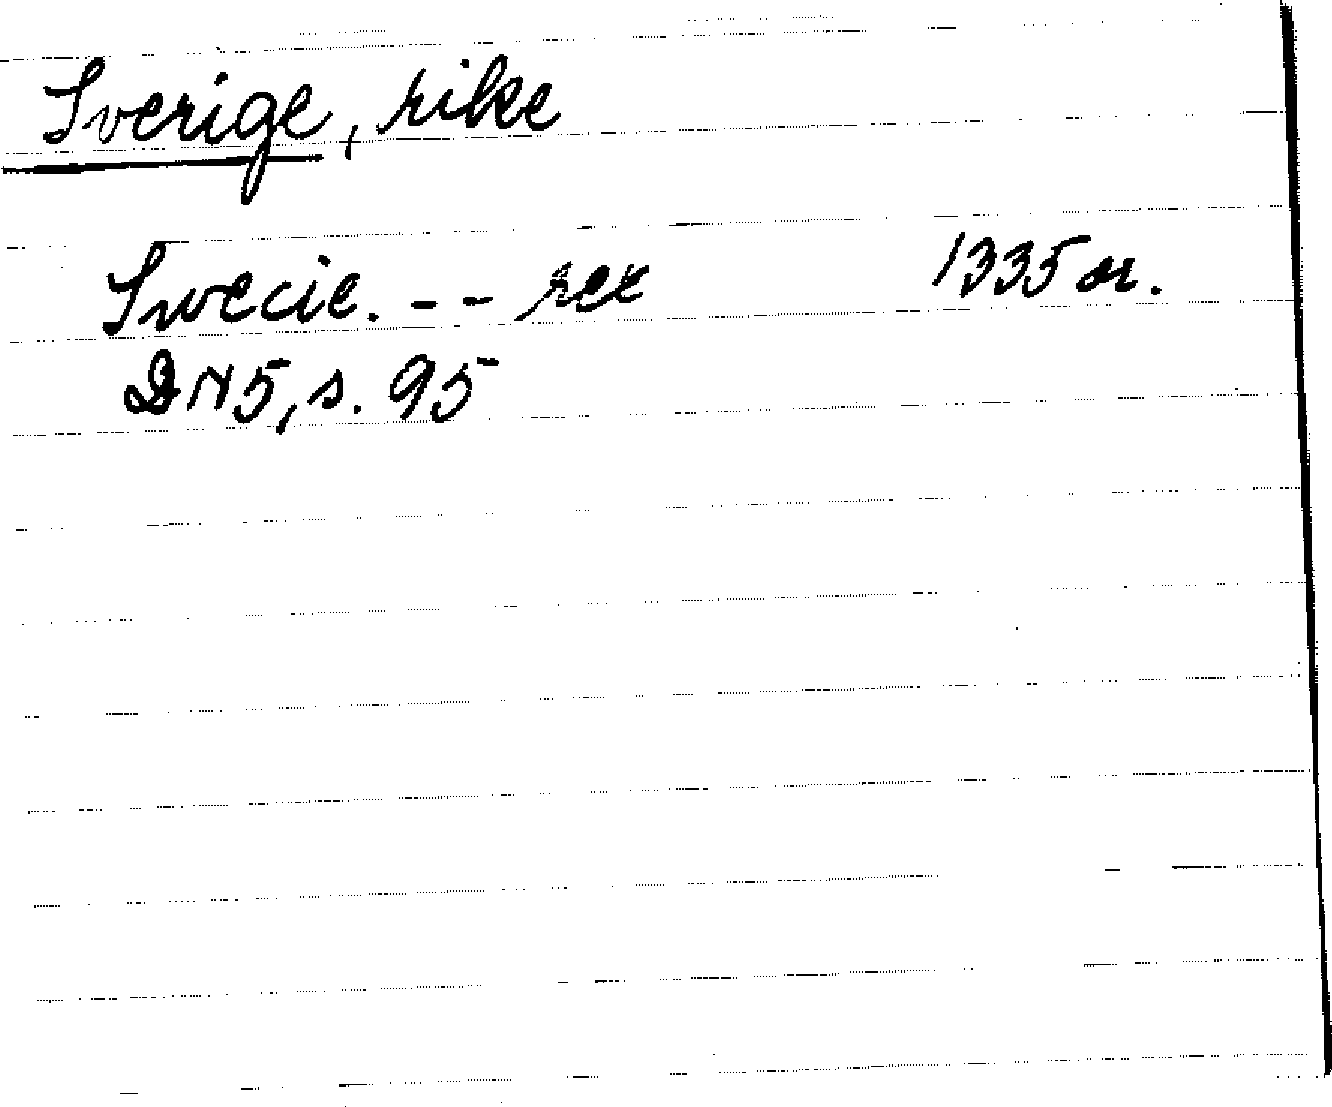 Sverige, rike
Swecie. -- rex 1335 or.
DN5, s. 95